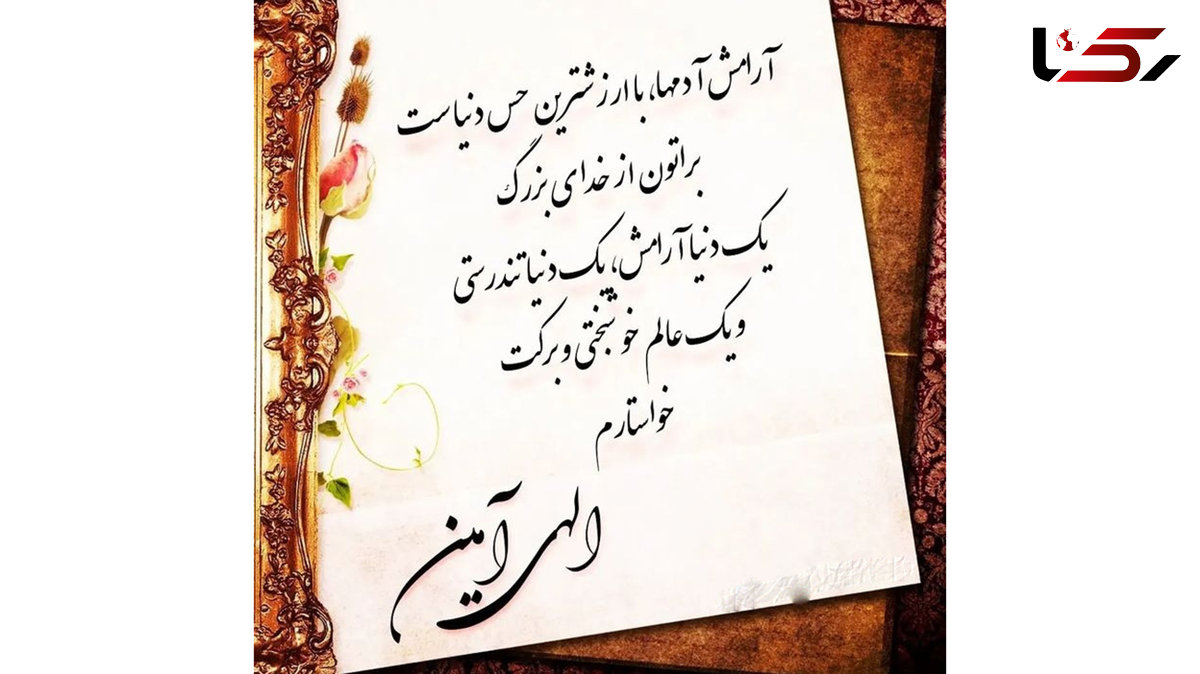 رکنا
آرامش آدمها، با ارزشترین حس دنیاست
براتون از خدای بزرگ
یک دنیا آرامش، یک دنیا تندرستی
و یک عالم خوشبختی و برکت
خواستارم
الهی آمین